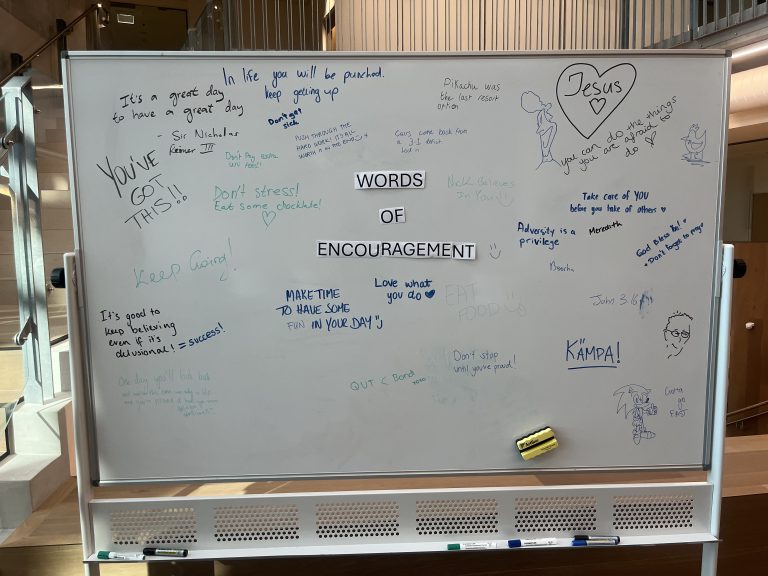 In life you will be punched.
keep getting up
It's a great day
to have a great day
- Sir Nicholas
Reimer III
Don't get
sick
PUSH THROUGH THE
HARD WORK! IT'S ALL
WORTH IT IN THE END
Pikachu was
the last resort
option
Jesus
you can do the things
you are afraid to
do
YOU'VE
GOT
THIS!!
Don't Pay
Don't stress!
Eat some chocklate!
come back from
a 3-1 deficit
WORDS
OF
ENCOURAGEMENT
Nick Believes
In You
Take care of YOU
before you take of others
Adversity is a
privilege
Meredith
God Bless You!
Don't forget to pray
Keep Going!
MAKE TIME
TO HAVE SOME
FUN IN YOUR DAY
Love what
you do
EAT
FOOD
John 3:16
It's good to
keep believing
even if it's
delusional! = success!
One day you'll look back
Don't stop
until you're proud!
KÄMPA!
QUT < Bond
Gotta
go
FAST